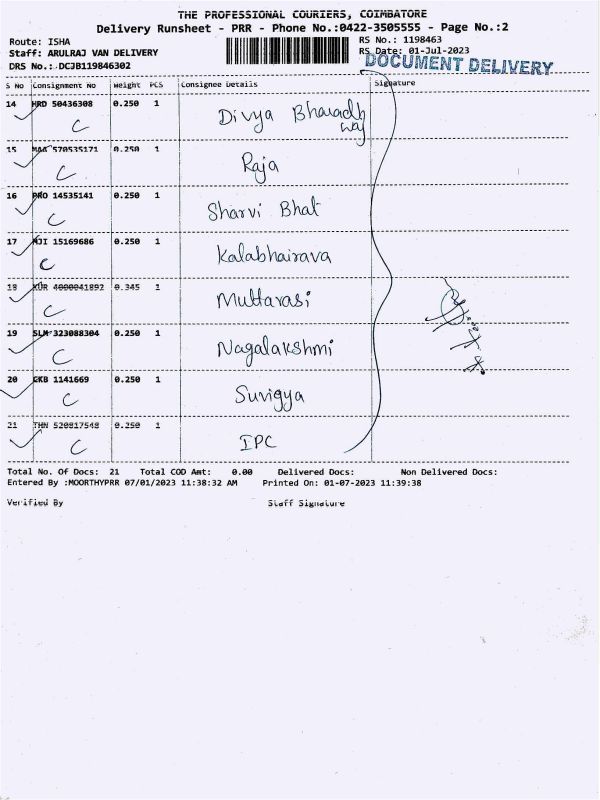 THE PROFESSIONAL COURIERS, COIMBATORE
Delivery Runsheet - PRR - Phone No.:0422-3505555 - Page No.:2
Route: ISHA RS No.: 1198463
Staff: ARULRAJ VAN DELIVERY RS Date: 01-Jul-2023
DRS No.: DCJB119846302 DOCUMENT DELIVERY
S No Consignment No Weight PCS Consignee Details Signature
14 HRD 50436308 0.250 1 Divya Bharadh
C way
15 MAA 570535171 0.250 1 Raja
C
16 PKO 14535141 0.250 1 Sharvi Bhat
C
17 MJI 15169686 0.250 1 Kalabhairava
C
18 KUR 4000041892 0.345 1 Muttarasi
C
19 SLM 323088304 0.250 1 Nagalakshmi
C
20 CKB 1141669 0.250 1 Suvigya
C
21 THN 520817548 0.250 1 IPC
C
Total No. Of Docs: 21 Total COD Amt: 0.00 Delivered Docs: Non Delivered Docs:
Entered By :MOORTHYPRR 07/01/2023 11:38:32 AM Printed On: 01-07-2023 11:39:38
Verified By Staff Signature